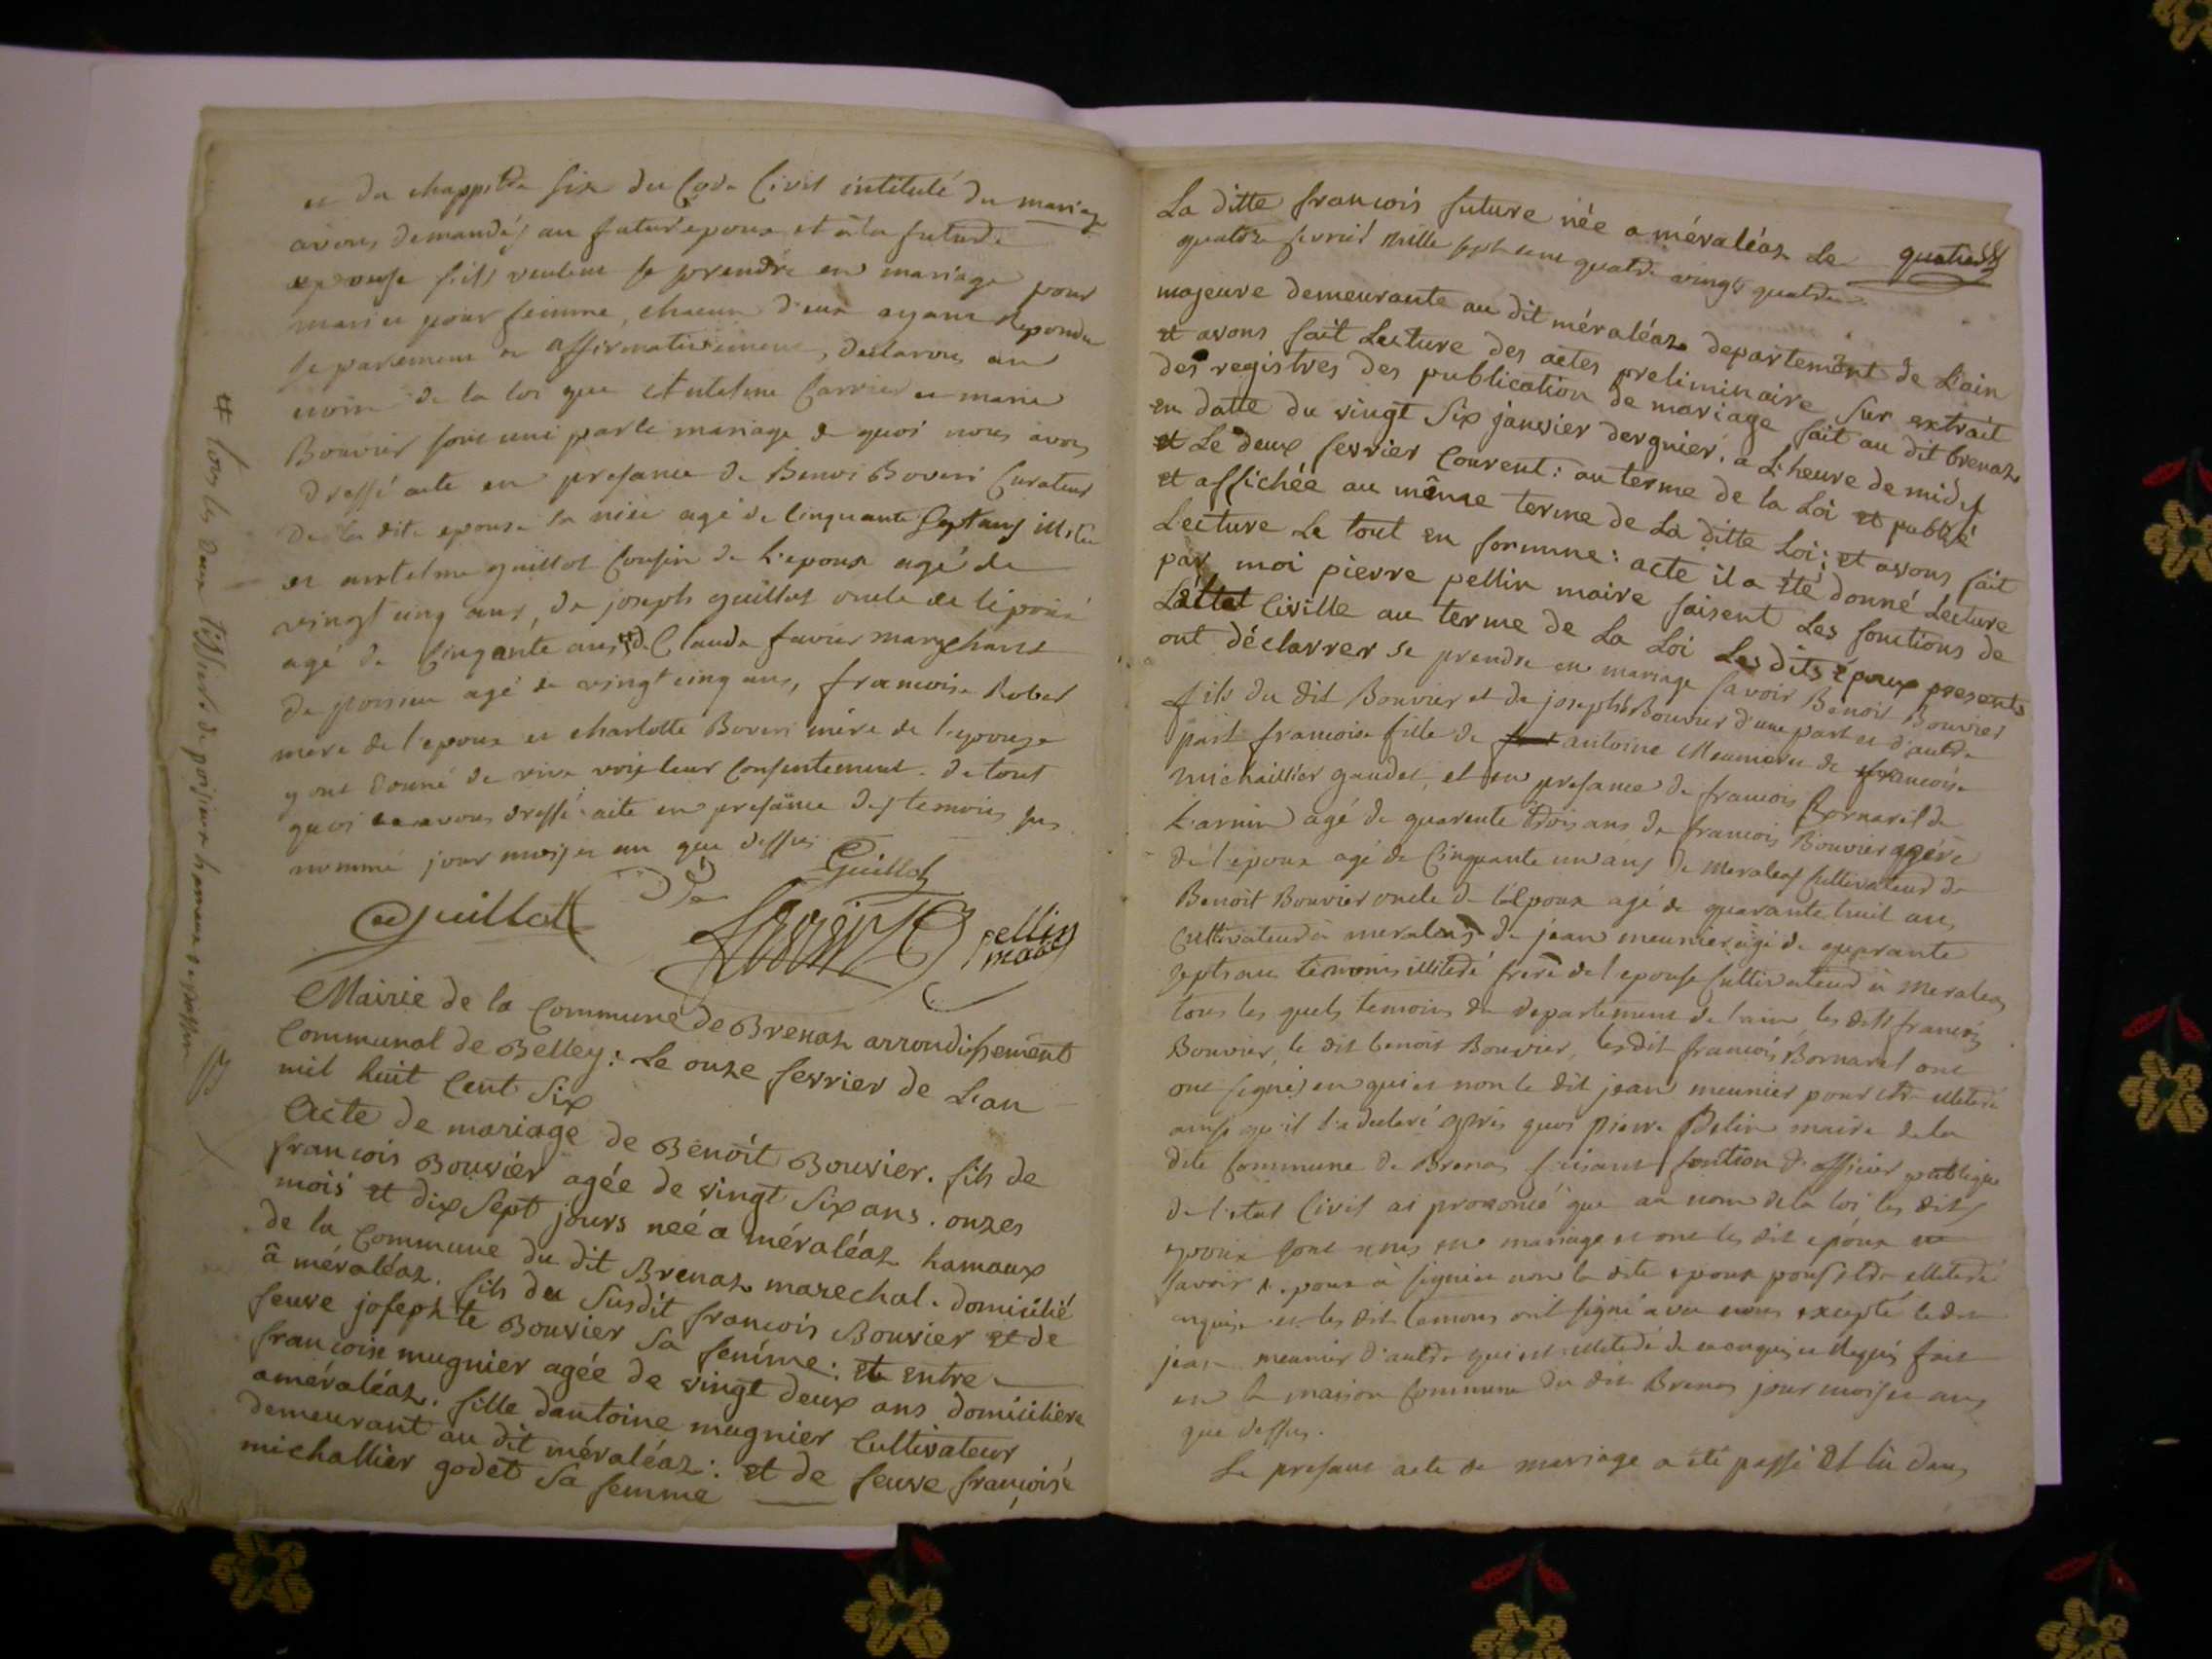 et du chappitre six du Code Civil intitulé du mariage
avons demandés au futur epoux et à la future
epouse s'ils veulent se prendre en mariage pour
mari et pour femme, chacun d'eux ayant repondu
separement et affirmativement, declarons au
nom de la loi que Antelme Carrier et marie
Bouvier sont uni par le mariage de quoi nous avons
dressé acte en presance de Benoi Boveri Curateur
de la dite epouse sa niéce agé de Cinquante Sept ans
et antelme guillot Cousin de l'epoux agé de
vingt cinq ans, de joseph guillot oncle de l'epoux
agé de Cinqante ans # de Claude favier marchant
de poisieu agé de vingt cinq ans, francoise Robet
mere de l'epoux et charlotte Boveri mére de l'epouse
y ont donné de vive voix leur Consentement. de tout
quoi avons dressé acte en presance des temoins sus
nommé jour mois et an que dessus
Guillot
Guillot
favier
pellin
maire
# tous les deux
Mairie de la Commune de Brenaz arrondissement
Communal de Belley: Le onze fevrier de L'an
mil huit Cent Six
Acte de mariage de Benoit Bouvier. fils de
francois Bouvier agée de vingt Six ans. onzes
mois et dix Sept jours neé a méraléaz hamaux
de la Commune du dit Brenaz marechal. domicilié
â méraléaz. fils du Susdit francois Bouvier et de
feuve josephte Bouvier Sa femme: Et entre
francoise mugnier agée de vingt deux ans domicilière
améraléaz. fille dantoine mugnier Cultivateur
demeurant au dit méraléaz: et de feuve francoise
michallier godet Sa femme
La ditte francois future née a méraléaz Le quatre
quatorze fevrier mille sept cent quatre vingts quatre
majeure demeurante au dit méraléaz departement de L'ain
et avons fait Lecture des actes preliminaire Sur extrait
des registres des publication de mariage fait au dit brenaz
en datte du vingt Six janvier dergnier. a L'heure de midis
et Le deux fevrier Courent: au terme de la Loi et publié
et affichée au même terme de La ditte Loi: et avons fait
Lecture Le tout en formme: acte il a été donné Lecture
par moi pierre pellin maire faisent Les fonctions de
L'ettat Civille au terme de La Loi Les dits époux presents
ont déclarrer se prendre en mariage savoir Benoit Bouvier
fils du dit Bouvier et de josephte Bouvier d'une part et d'autre
part francoise fille de antoine Meunier et de francoise
michaillier gaudet, et en presance de francois Bornarel de
L'armin agé de quarente trois ans de francois Bouvier pére
de l'epoux agé de Cinquante un ans de Meraleaz Cultivateur de
Benoit Bouvier oncle de l'Epoux agé de quarante huit ans
Cultivateur à meraleaz de jean meunier agé de quarante
sept ans temoins illiteré frere de l'epouse Cultivateur à Meraleaz
tous les quels temoins du departement de l'ain, les dits francois
Bouvier, le dit benoit Bouvier, les dit francois Bornarel ont
ont signé en quis et non le dit jean meunier pour etre illiteré
ainsi qu'il l'a declaré aprés quoi pierre Pelin maire de la
dite Commune de Brenaz faisant fontion d'officier publique
de l'etat Civil ai prononcé que au nom de la loi les dits
epoux sont unis en mariage et ont les dit epoux
savoir l'epoux à signé et non la dite epouse pour etre illiteré
enquise et les dits temoins ont signé avec nous excepté le dit
jean meunier d'autre qui est illiteré de ce enquis et requis fait
en la maison Commune du dit Brenaz jour mois et ans
que dessus.
Le presant acte de mariage a été passé Et lû dans